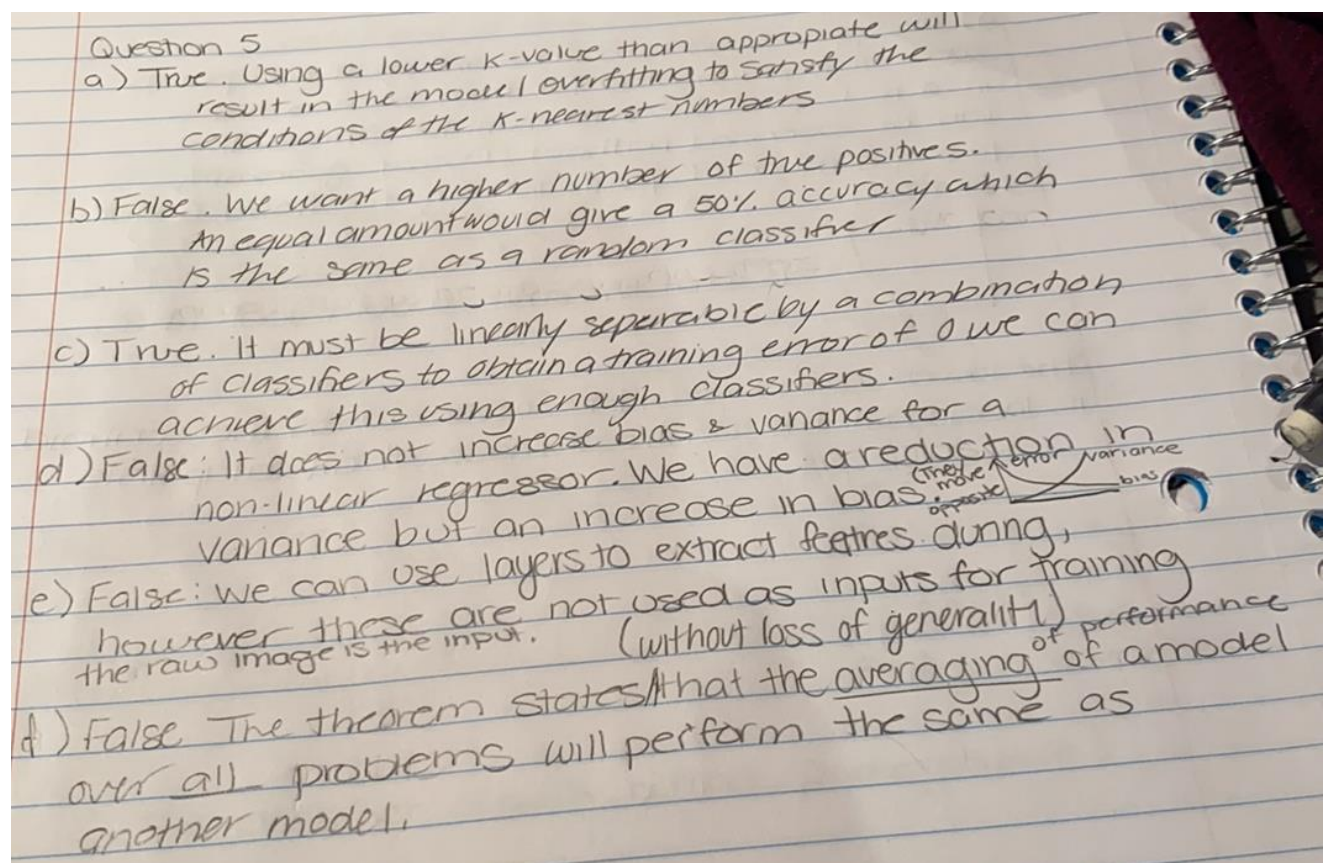 Question 5
a) True. Using a lower k-value than appropiate will
result in the model overfitting to satisfy the
conditions of the k-nearest numbers
b) False. We want a higher number of true positives.
An equal amount would give a 50% accuracy which
is the same as a random classifier
c) True. It must be linearly separable by a combination
of classifiers to obtain a training error of 0 we can
achieve this using enough classifiers.
d) False: It does not increase bias & variance for a
non-linear regressor. We have a reduction in
variance but an increase in bias. (They move opposite) error variance bias
e) False: We can use layers to extract featres during,
however these are not used as inputs for training
the raw image is the input. (without loss of generality)
f) False The theorem states that the averaging of performance of a model
over all problems will perform the same as
another model.